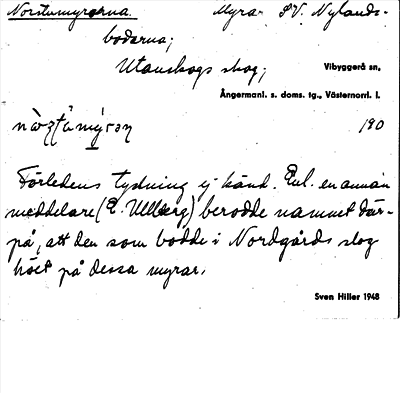 Norstumyrorna. Myra. SV. Nylands-
bodarna;
Utanskogs skog; Vibyggerå sn,
Ångermanl. s. doms. tg., Västernorrl. l.
190
Förledens tydning ej känd. Enl. en annan
meddelare (E. Ullberg) berodde namnet där-
på, att den som bodde i Nordgårds slog
höet på dessa myrar.
Sven Hiller 1948